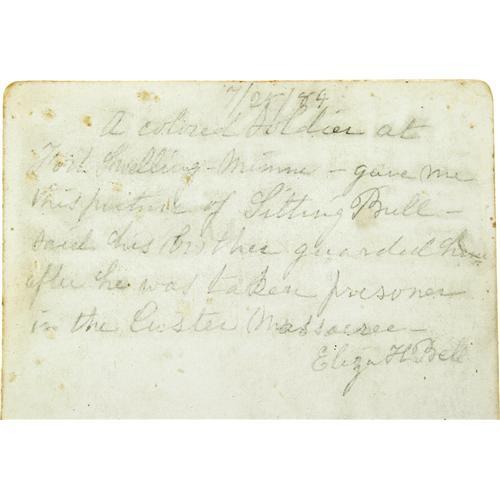 7/25/84
A colored Soldier at
Fort Snelling - Minne - gave me
this picture of Sitting Bull -
said his brother guarded him
after he was taken prisoner
in the Custer Massacree -
Eliza H Bell